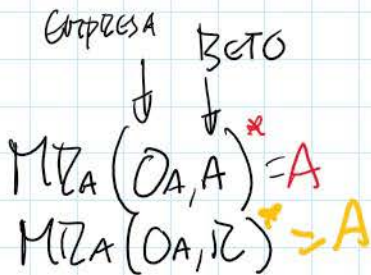 EMPRESA BETO
MRA (OA, A)* = A
MRA (OA, R)* = A